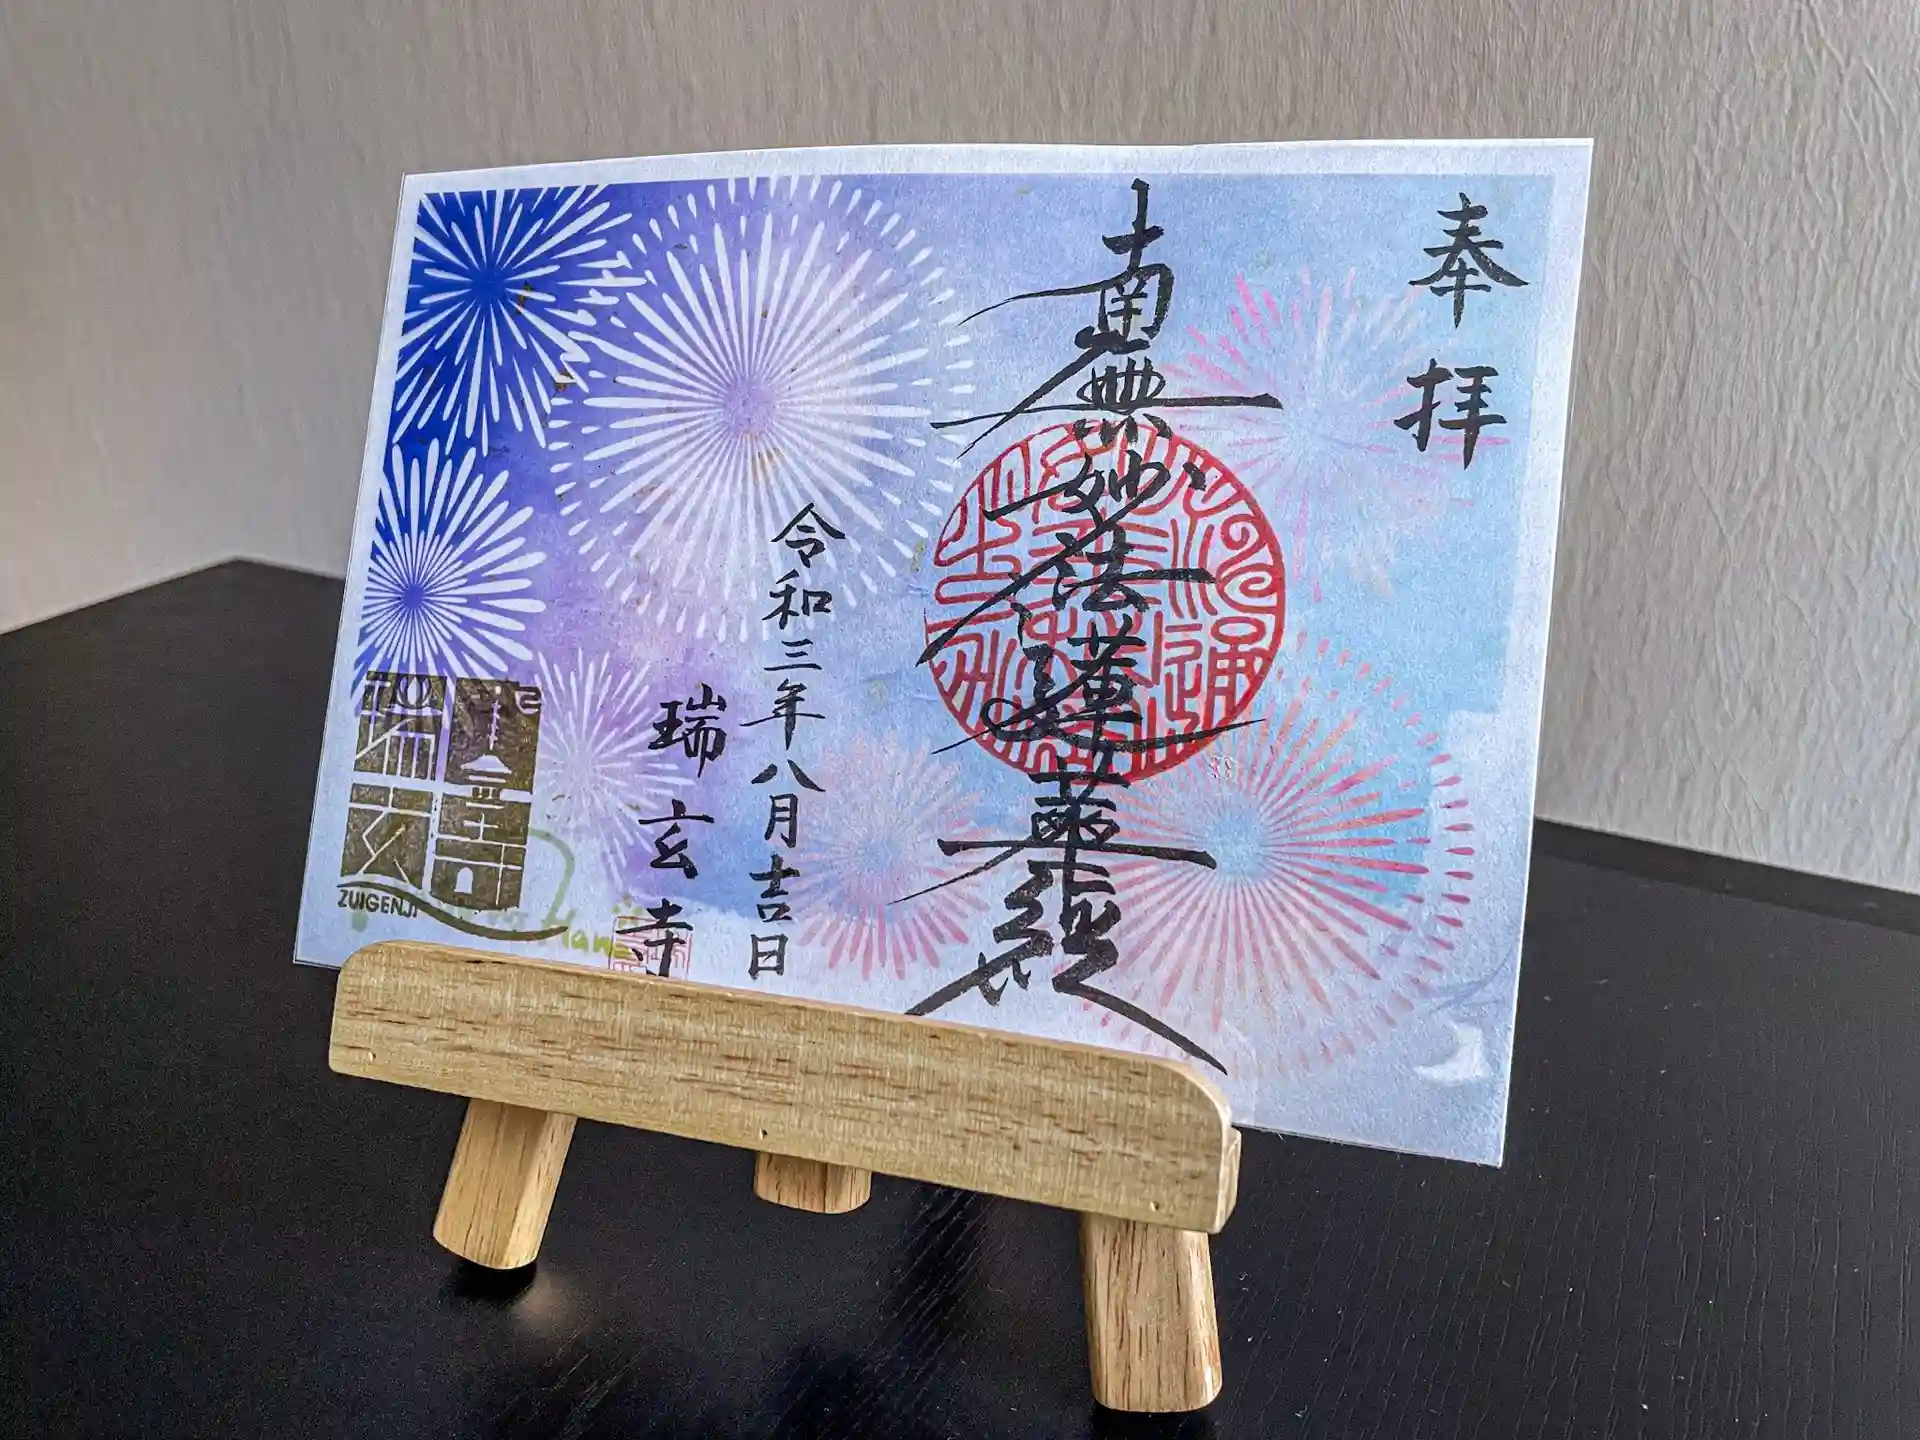 奉拝
南無妙法蓮華経
令和三年八月吉日
瑞玄寺
瑞玄寺
ZUIGENJI